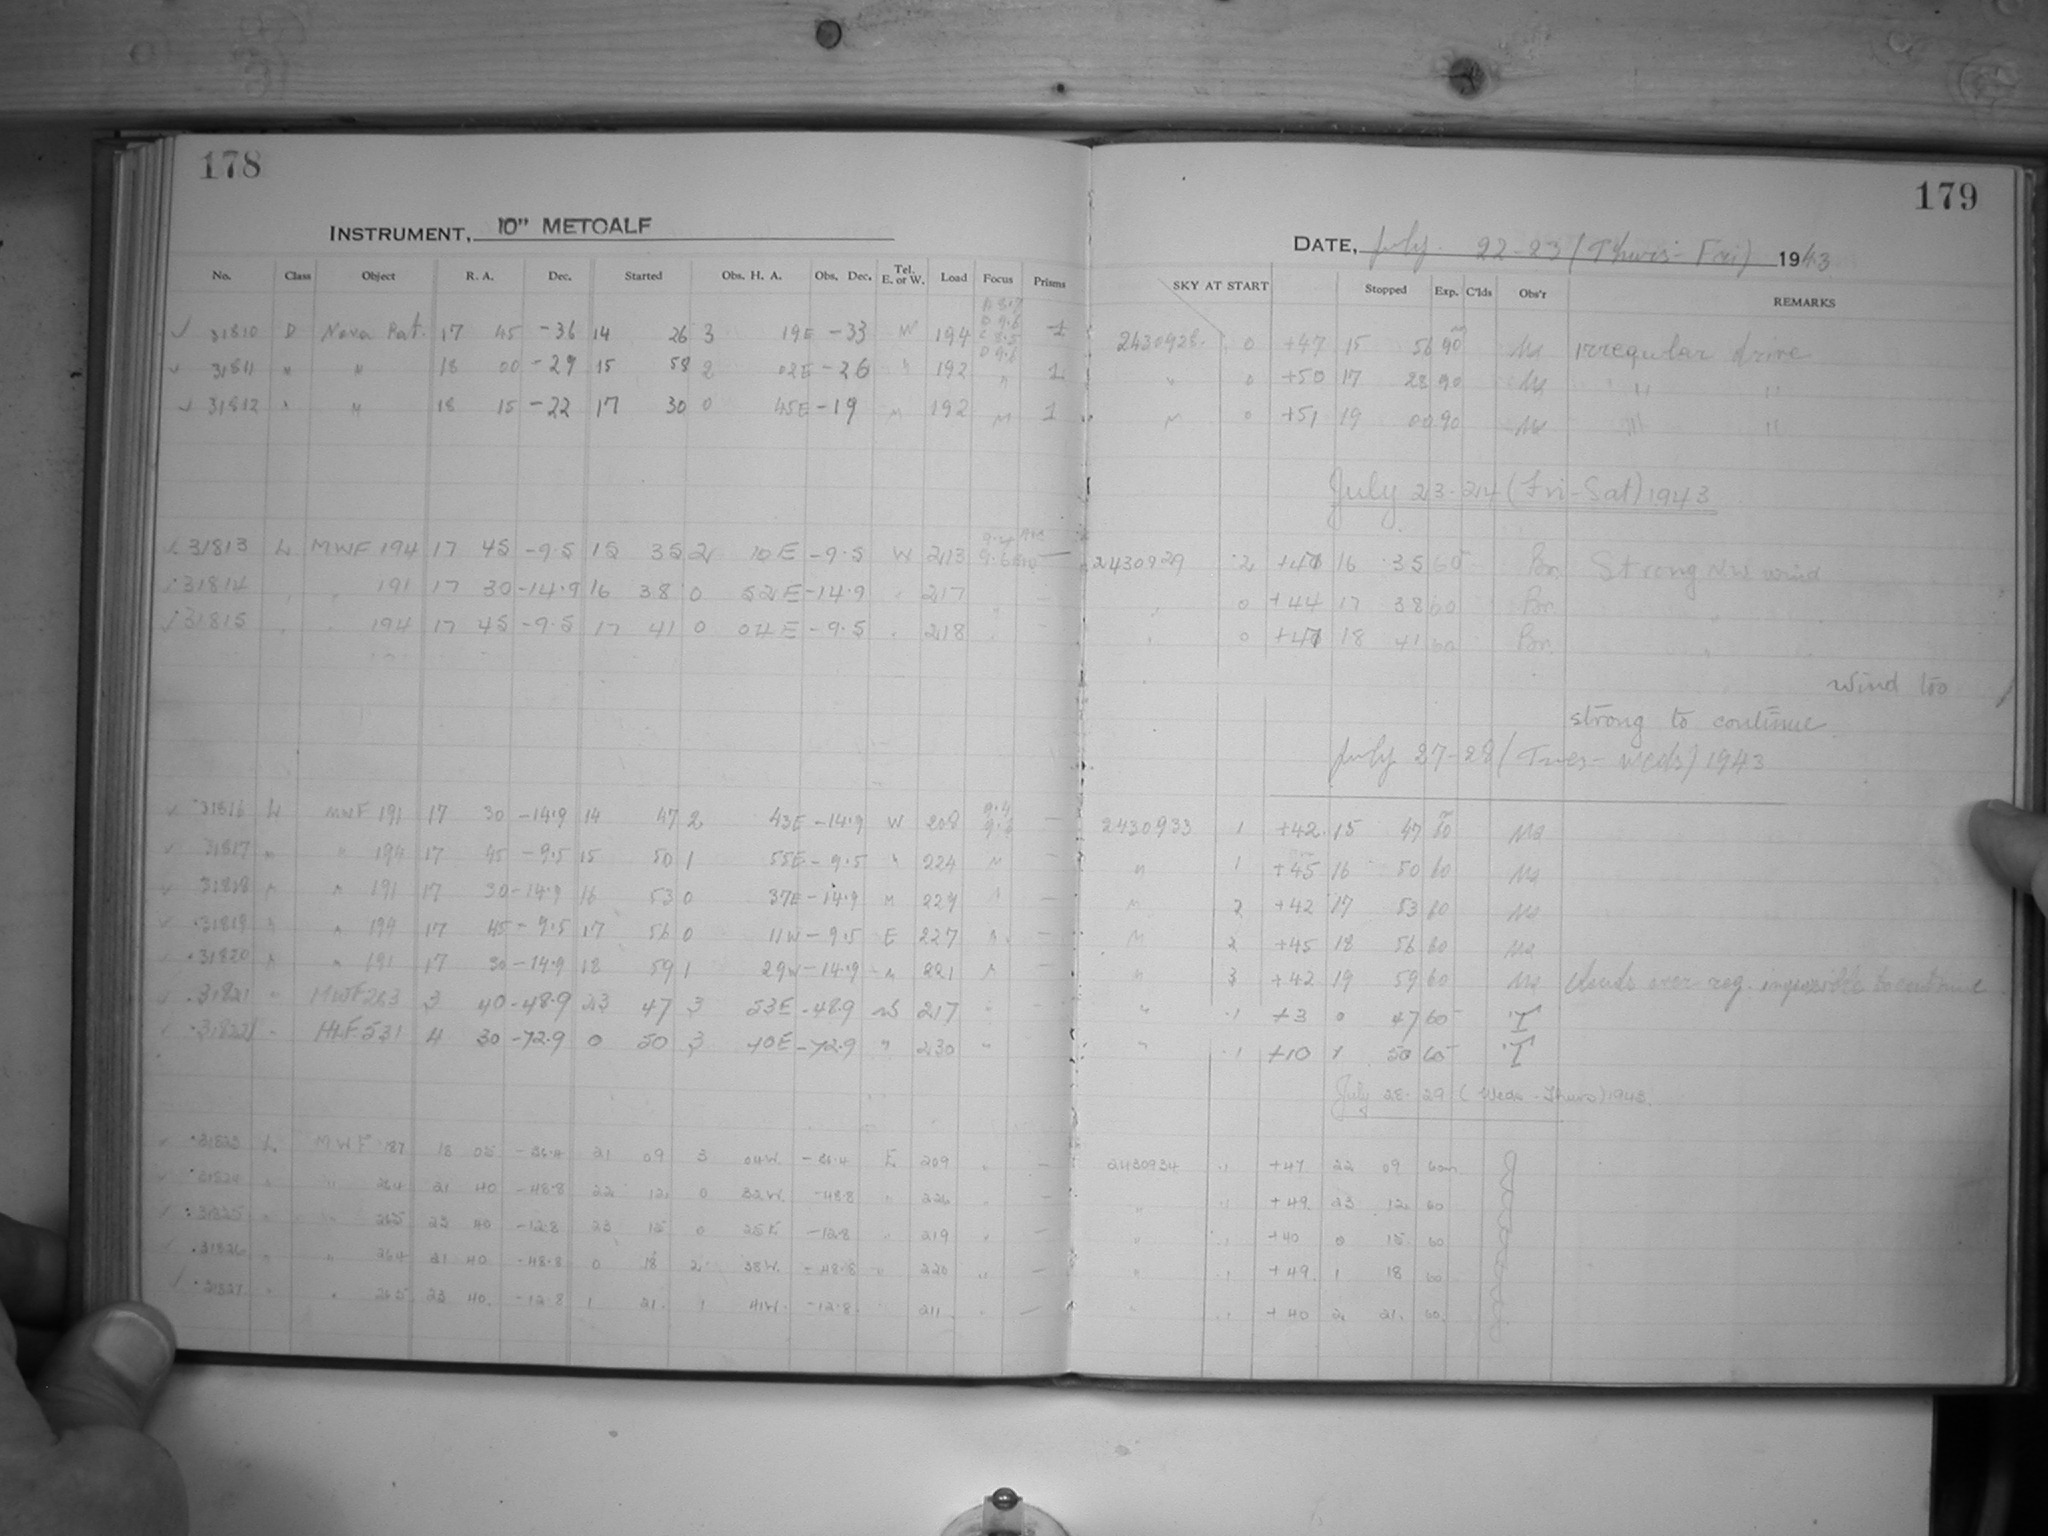 178
179
INSTRUMENT, 10" METCALF
DATE, July 22-23 (Thurs-Fri) 1943
No. Class Object R. A. Dec. Started Obs. H. A. Obs. Dec. Tel. E. or W. Load Focus Prisms SKY AT START Stopped Exp. C'lds Obs'r REMARKS
31810 D Nova 17 45 -36 14 26 3 19E -33 W 194 1 2430928 0 +47 15 56 90 irregular drive
31811 " " 18 00 -29 15 58 2 02E -26 " 192 " 1 " 0 +50 17 28 90 " "
31812 " " 18 15 -22 17 30 0 45E -19 " 192 " 1 " 0 +51 19 00 90 " "
July 23-24 (Fri-Sat) 1943
31813 L MWF 194 17 45 -9.5 15 35 2 10E -9.5 W 213 — 2430929 2 16 35 60 Br. Strong N.W wind
31814 " " 191 17 30 -14.9 16 38 0 52E -14.9 " 217 " — " 0 +44 17 38 60 Br. " "
31815 " " 194 17 45 -9.5 17 41 0 04E -9.5 " 218 " — " 0 18 41 60 Br. " "
wind too
strong to continue
July 27-28 (Tues-Weds) 1943
31816 L MWF 191 17 30 -14.9 14 47 2 43E -14.9 W 208 — 2430933 1 +42 15 47 60
31817 " " 194 17 45 -9.5 15 50 1 55E -9.5 " 224 " — " 1 +45 16 50 60
31818 " " 191 17 30 -14.9 16 53 0 37E -14.9 " 229 " — " 2 +42 17 53 60
31819 " " 194 17 45 -9.5 17 56 0 11W -9.5 E 227 " — " 2 +45 18 56 60
31820 " " 191 17 30 -14.9 18 59 1 29W -14.9 " 221 " — " 3 +42 19 59 60 clouds over reg. impossible to continue
31821 " MWF 263 3 40 -48.9 23 47 3 53E -48.9 W 217 " " 1 +3 0 47 60
31822 " HLF 531 4 30 -72.9 0 50 3 40E -72.9 " 230 " " 1 +10 1 50 60
July 28-29 (Weds-Thurs) 1943.
31823 L MWF 187 18 05 21 09 3 04W. E 209 " — 2430934 1 +47 22 09 60m
31824 " " 264 21 40 -48.8 22 12 0 32W -48.8 " 226 " — " 1 +49 23 12 60
31825 " " 265 23 40 -12.8 23 15 0 25E -12.8 " 219 " — " 1 +40 0 15 60
31826 " " 264 21 40 -48.8 0 18 2 38W. -48.8 " 220 " — " 1 +49 1 18 60
31827 " " 265 23 40 -12.8 1 21 1 41W. -12.8 " 211 " — " 1 +40 2 21 60